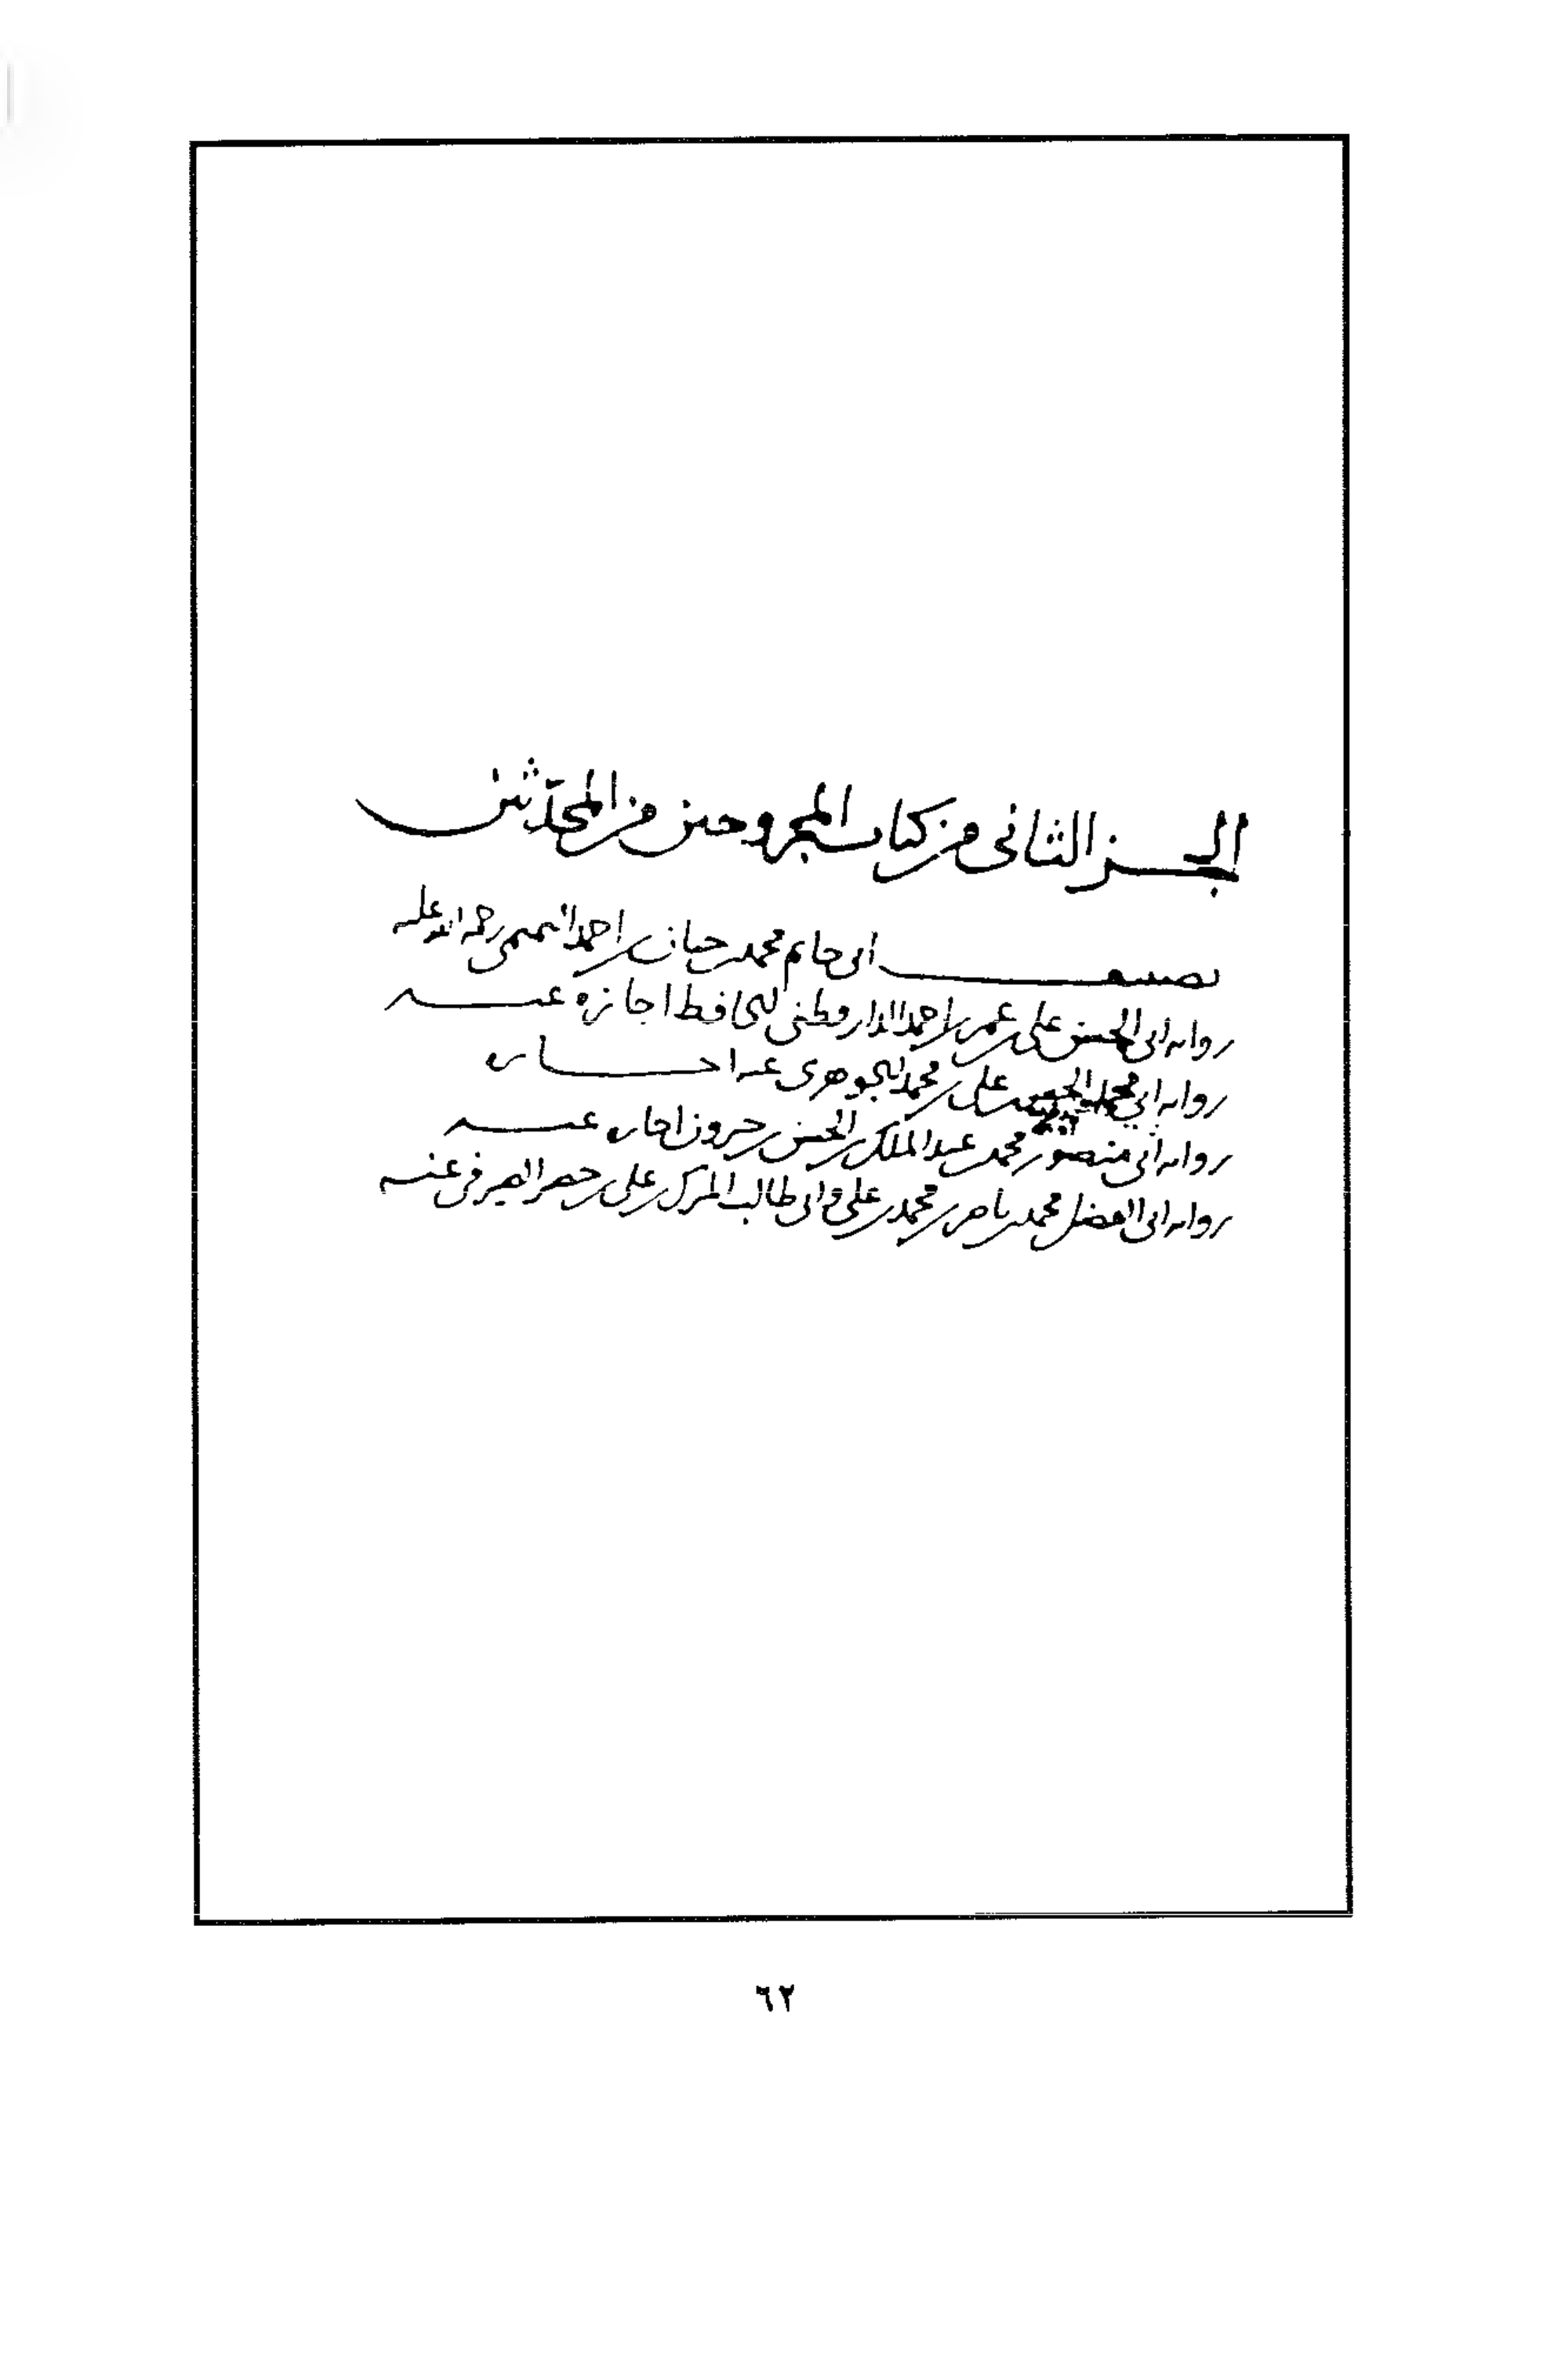 الجزء الثاني من كتاب المجروحين من المحدثين
تصنيف أبي حاتم محمد بن حبان بن احمد التميمي رحمة الله عليه
رواية ابي الحسن علي بن عمر بن احمد الدارقطني الحافظ اجازة عنه
رواية ابي محمد الحسن بن علي بن محمد الجوهري عنه اجازة
رواية أبي منصور محمد بن عبد الملك بن الحسن بن خيرون اجازة عنه
رواية ابي الفضل محمد بن ناصر بن محمد بن علي وابي طالب المبارك بن علي بن خضير الصيرفي عنه
٦٢